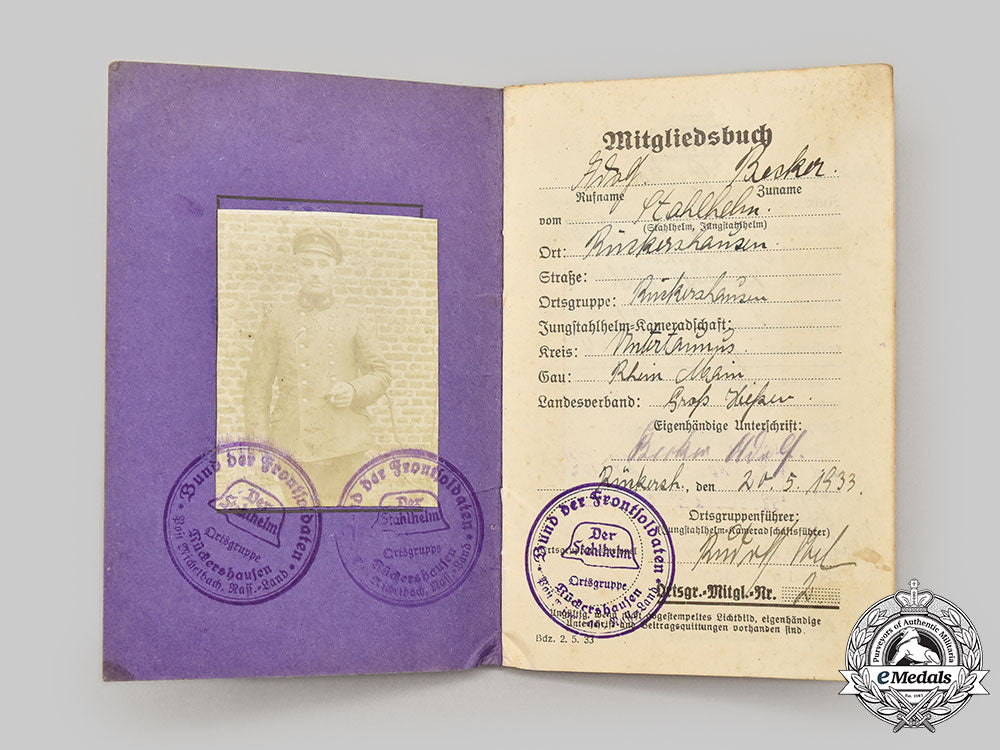 Mitgliedsbuch
Adolf Becker.
Rufname Zuname
vom Stahlhelm.
(Stahlhelm, Jungstahlhelm)
Ort: Rückershausen.
Straße:
Ortsgruppe: Rückershausen
Jungstahlhelm-Kameradschaft:
Kreis: Untertaunus
Gau: Rhein Main
Landesverband: Groß Hessen
Eigenhändige Unterschrift:
Becker Adolf.
Rückersh., den 20.5.1933.
Ortsgruppenführer:
(Jungstahlhelm-Kameradschaftsführer)
Rudolf
Ortsgr.-Mitgl.-Nr. 2
Ungültig, wenn nicht abgestempeltes Lichtbild, eigenhändige
Unterschrift und Beitragsquittungen vorhanden sind.
Bdz. 2. 5. 33
Bund der Frontsoldaten
Der
Stahlhelm
Ortsgruppe
Rückershausen
Post Michelbach, Nass.-Land
Bund der Frontsoldaten
Der
Stahlhelm
Ortsgruppe
Rückershausen
Post Michelbach, Nass.-Land
Bund der Frontsoldaten
Der
Stahlhelm
Ortsgruppe
Rückershausen
Purveyors of Authentic Militaria
eMedals